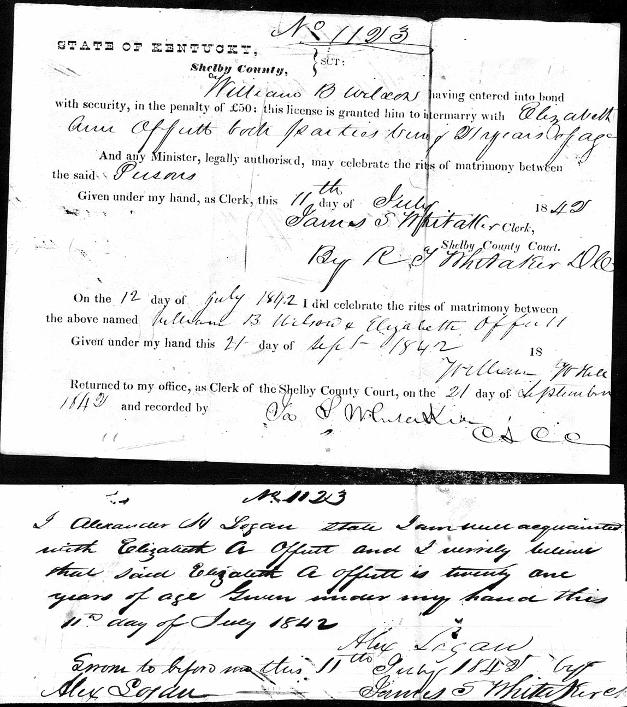 No 1123
STATE OF KENTUCKY,
Shelby County, SCT:
William B Wilson having entered into bond
with security, in the penalty of £50: this license is granted him to intermarry with Elizabeth
Ann Offutt both parties being 21 years of age
And any Minister, legally authorised, may celebrate the rites of matrimony between
the said Persons
Given under my hand, as Clerk, this 11th day of July 1842
James S Whitaker Clerk,
Shelby County Court.
By R T Whitaker D C
On the 12 day of July 1842 I did celebrate the rites of matrimony between
the above named William B Wilson & Elizabeth Offutt
Given under my hand this 21 day of Sept 1842 18
William
Returned to my office, as Clerk of the Shelby County Court, on the 21 day of September
1842 and recorded by Ja S Whitaker
C S C C
No 1123
I Alexander H Logan state I am well acquainted
with Elizabeth A Offutt and I verily believe
that said Elizabeth A Offutt is twenty one
years of age Given under my hand this
11th day of July 1842
Alex Logan
Sworn to before me this 11th July 1842 by
Alex Logan James S Whitaker